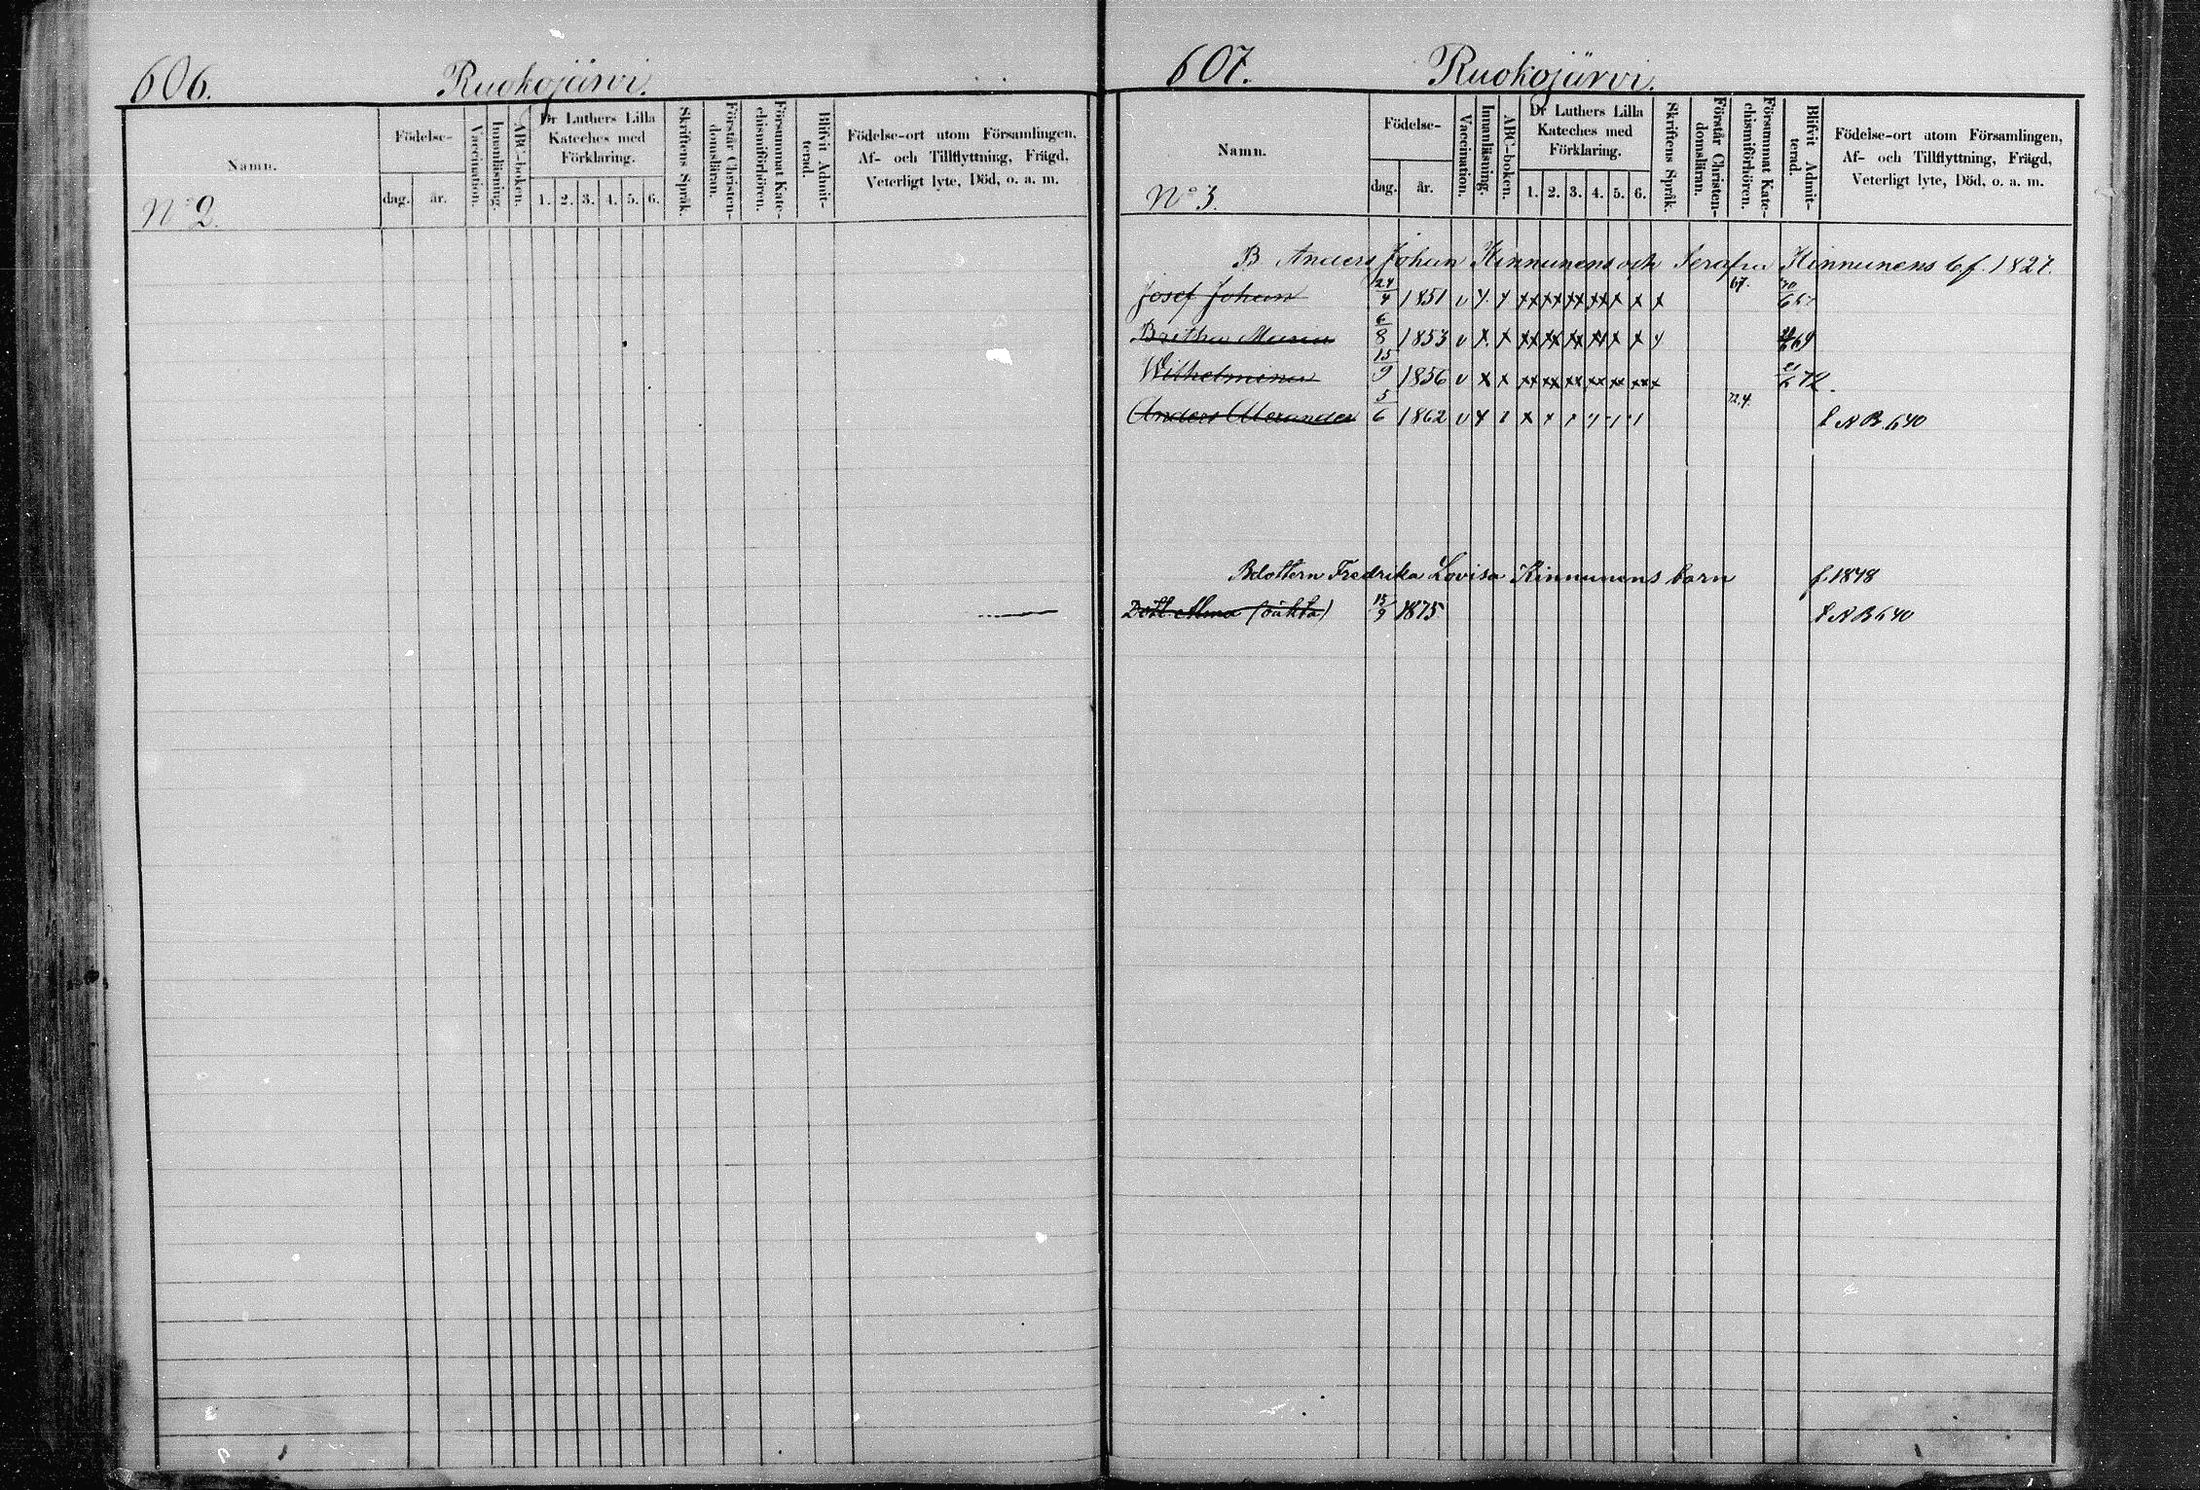 606.
Ruokojärvi.
Namn.
No 2.
Födelse-
dag. år.
Vaccination.
Innanläsning.
ABC-boken.
Dr Luthers Lilla
Kateches med
Förklaring.
1. 2. 3. 4. 5. 6.
Skriftens Språk.
Förstår Christen-
domsläran.
Försummat Kate-
chismiförhören.
Blifvit Admit-
terad.
Födelse-ort utom Församlingen,
Af- och Tillflyttning, Frägd,
Veterligt lyte, Död, o. a. m.
607.
Ruokojärvi.
Namn.
No 3.
Födelse-
dag. år.
Vaccination.
Innanläsning.
ABC-boken.
Dr Luthers Lilla
Kateches med
Förklaring.
1. 2. 3. 4. 5. 6.
Skriftens Språk.
Förstår Christen-
domsläran.
Försummat Kate-
chismiförhören.
Blifvit Admit-
terad.
Födelse-ort utom Församlingen,
Af- och Tillflyttning, Frägd,
Veterligt lyte, Död, o. a. m.
B Anders Johan Kinnunens och Serafia Kinnunens b f. 1827.
Josef Johan 24/4 1851 v x x xx xx xx xx x x x 67.
Britha Maria 6/8 1853 v x x xx xx xx xx x x x 69
Wilhelmina 15/9 1856 v x x xx xx xx xx x xx x 72.
Anders Alexander 5/6 1862 v x 72,4. NB. 640
Bdottern Fredrika Lovisa Kinnunens barn f. 1848
Dott Alma (oäkta) 15/9 1875 NB 640